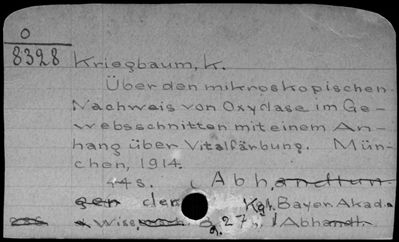 O
8328
Kriegbaum, K.
Über den mikroskopischen
Nachweis von Oxydase im Ge-
websschnitten mit einem An-
hang über Vitalfärbung. Mün-
chen, 1914.
44 s. (Abhandlun
gen der Kgh. Bayer. Akad.
Wiss. 27. Abhandt.